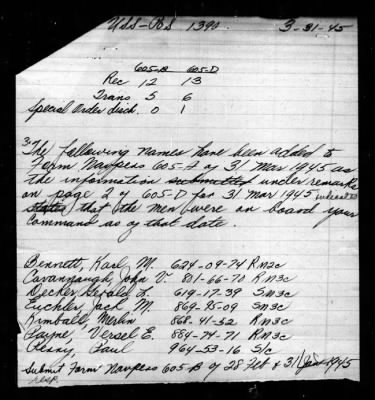 USS-PBS 1390. 3-31-45
605-B 605-D
Rec 12 13
Trans 5 6
Special Order disch. 0 1
The following names have been added to
Form Navpers 605-A of 31 Mar 1945 as
the information submitted under remarks
on page 2 of 605-D for 31 Mar 1945 indicated
stated that the men were on board your
command as of that date.
Bennett, Karl M. 624-09-74 RM3c
Cavannaugh, John V. 801-66-70 RM3c
Decker, Gerald L. 619-17-39 SM3c
Euchler, Jack M. 869-95-09 SM3c
Kimball, Merlin 868-41-52 RM3c
Payne, Versel E. 884-74-71 RM3c
Penny, Paul 964-53-16 S1c
Submit Form Navpers 605-B of 28 Feb & 31 Jan 1945